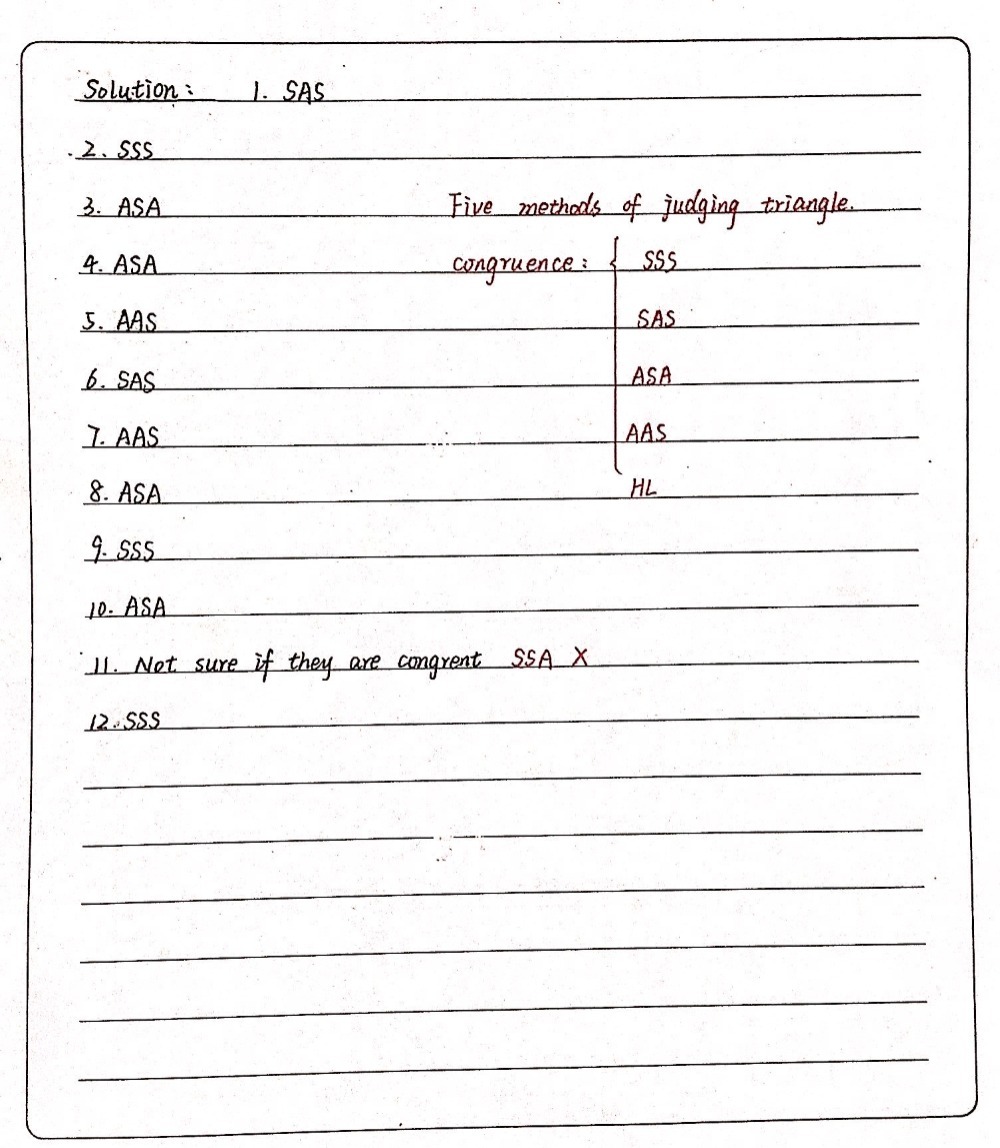 Solution: 1. SAS
2. SSS
3. ASA Five methods of judging triangle.
4. ASA congruence: { SSS
5. AAS SAS
6. SAS ASA
7. AAS AAS
8. ASA HL
9. SSS
10. ASA
11. Not sure if they are congrent SSA X
12. SSS